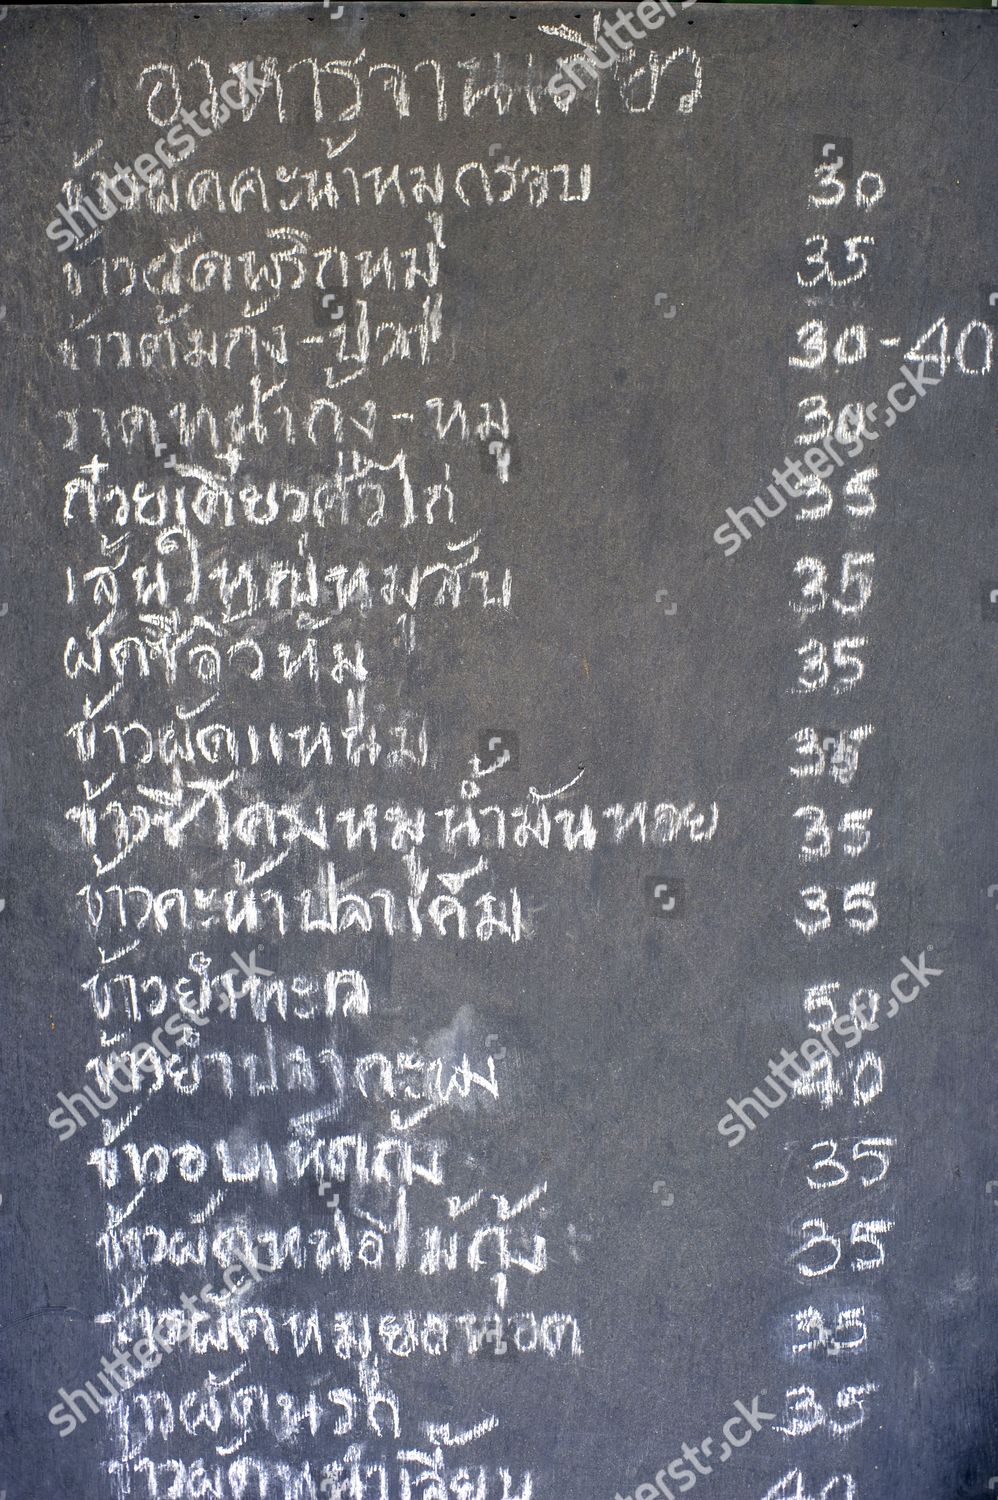 อาหารจานเดียว
ข้าวผัดคะน้าหมูกรอบ 30
ข้าวผัดพริกหมู 35
ข้าวต้มกุ้ง-ปู 30-40
ราดหน้ากุ้ง-หมู 30
ก๋วยเตี๋ยวคั่วไก่ 35
เส้นใหญ่หมูสับ 35
ผัดซีอิ้วหมู 35
ข้าวผัดแหนม 35
ข้าวซี่โครงหมูน้ำมันหอย 35
ข้าวคะน้าปลาเค็ม 35
ข้าวยำทะเล 50
ข้าวยำปลากะพง 40
ข้าวอบเห็ดกุ้ง 35
ข้าวผัดหน่อไม้กุ้ง 35
ข้าวผัดหมู 35
ข้าวผัด 35
ข้าวผัด 40
shutterstock
shutterstock
shutterstock
shutterstock
shutterstock
shutterstock
shutterstock